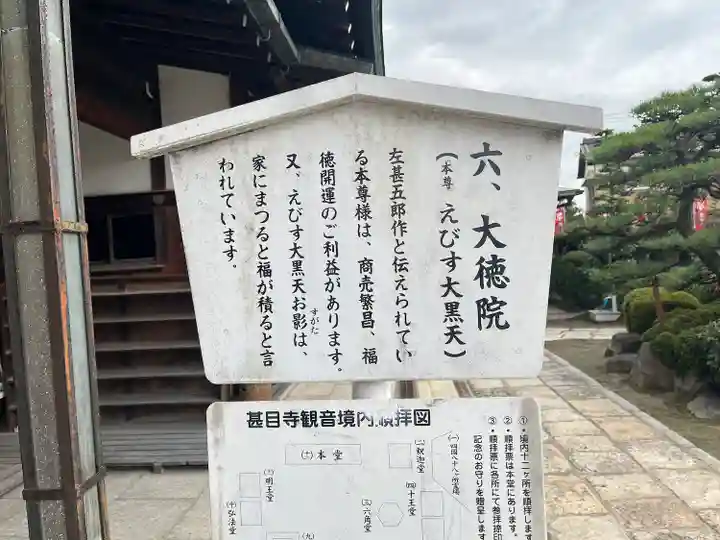 六、大徳院
(本尊 えびす大黒天)
左甚五郎作と伝えられてい
る本尊様は、商売繁昌、福
徳開運のご利益があります。
又、えびす大黒天お影は、
すがた
家にまつると福が積ると言
われています。
甚目寺観音境内順拝図
①・境内十二ヶ所を順拝します
②・順拝票は本堂にあります。
③・順拝票に各所にて参拝捺印
記念のお守りを贈呈します
(一)四国八十八ヶ所霊場
(二)釈迦堂
(四)十王堂
(三)六角堂
(六)本堂
明王堂
(十)弘法堂
(九)